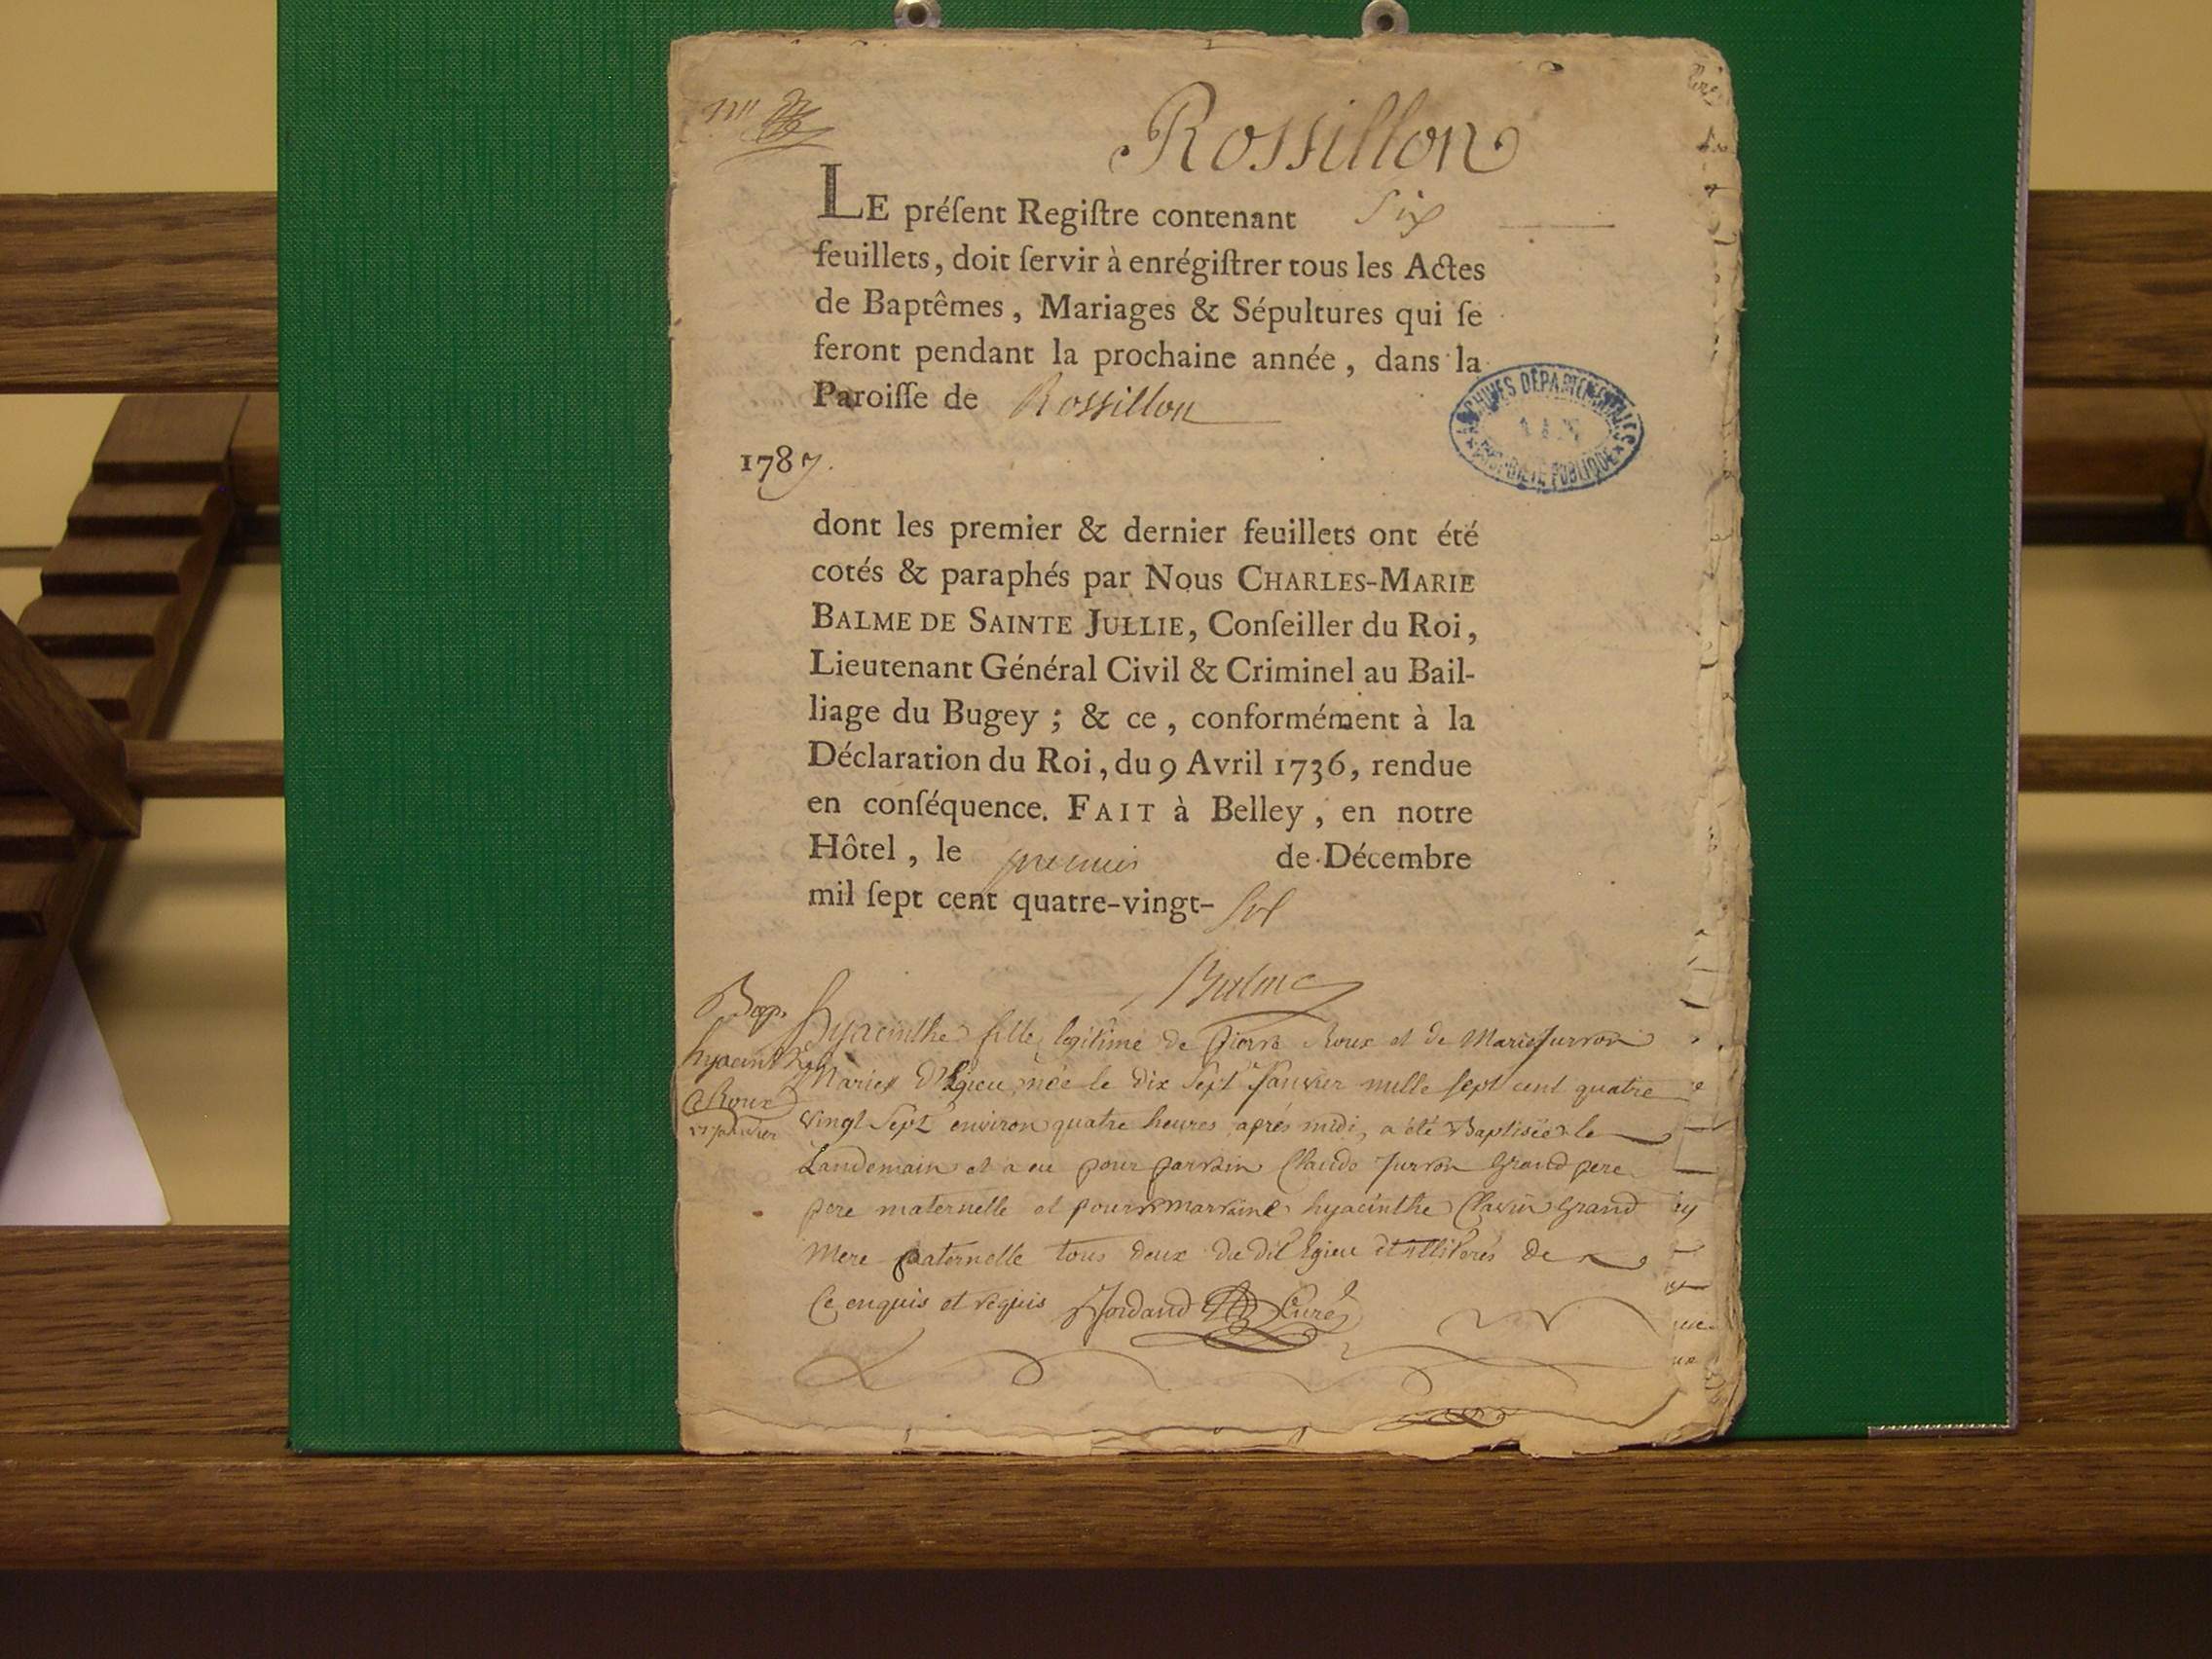 Rossillon
LE préſent Regiſtre contenant six
feuillets, doit ſervir à enrégiſtrer tous les Actes
de Baptêmes, Mariages & Sépultures qui ſe
feront pendant la prochaine année, dans la
Paroiſſe de Rossillon
ARCHIVES DÉPARTEMENTALES
AIN
PROPRIÉTÉ PUBLIQUE
1787.
dont les premier & dernier feuillets ont été
cotés & paraphés par Nous CHARLES-MARIE
BALME DE SAINTE JULLIE, Conſeiller du Roi,
Lieutenant Général Civil & Criminel au Bail-
liage du Bugey ; & ce, conformément à la
Déclaration du Roi, du 9 Avril 1736, rendue
en conſéquence. FAIT à Belley, en notre
Hôtel, le premier de Décembre
mil ſept cent quatre-vingt- six
Balme
Bap.
hyacinthe
Roux
17 janvier
Hyacinthe fille legitime de Pierre Roux et de Marie Jurron
Mariés D'Egieu née le dix sept Janvier mille sept cent quatre
vingt sept environ quatre heures après midi, a été Baptisée le
Landemain et a eu pour parrain Claude Jurron grand pere
pere maternelle et pour marraine hyacinthe grand
Mere paternelle tous deux du dit Egieu et illiterés de
Ce enquis et requis Jordand Curé